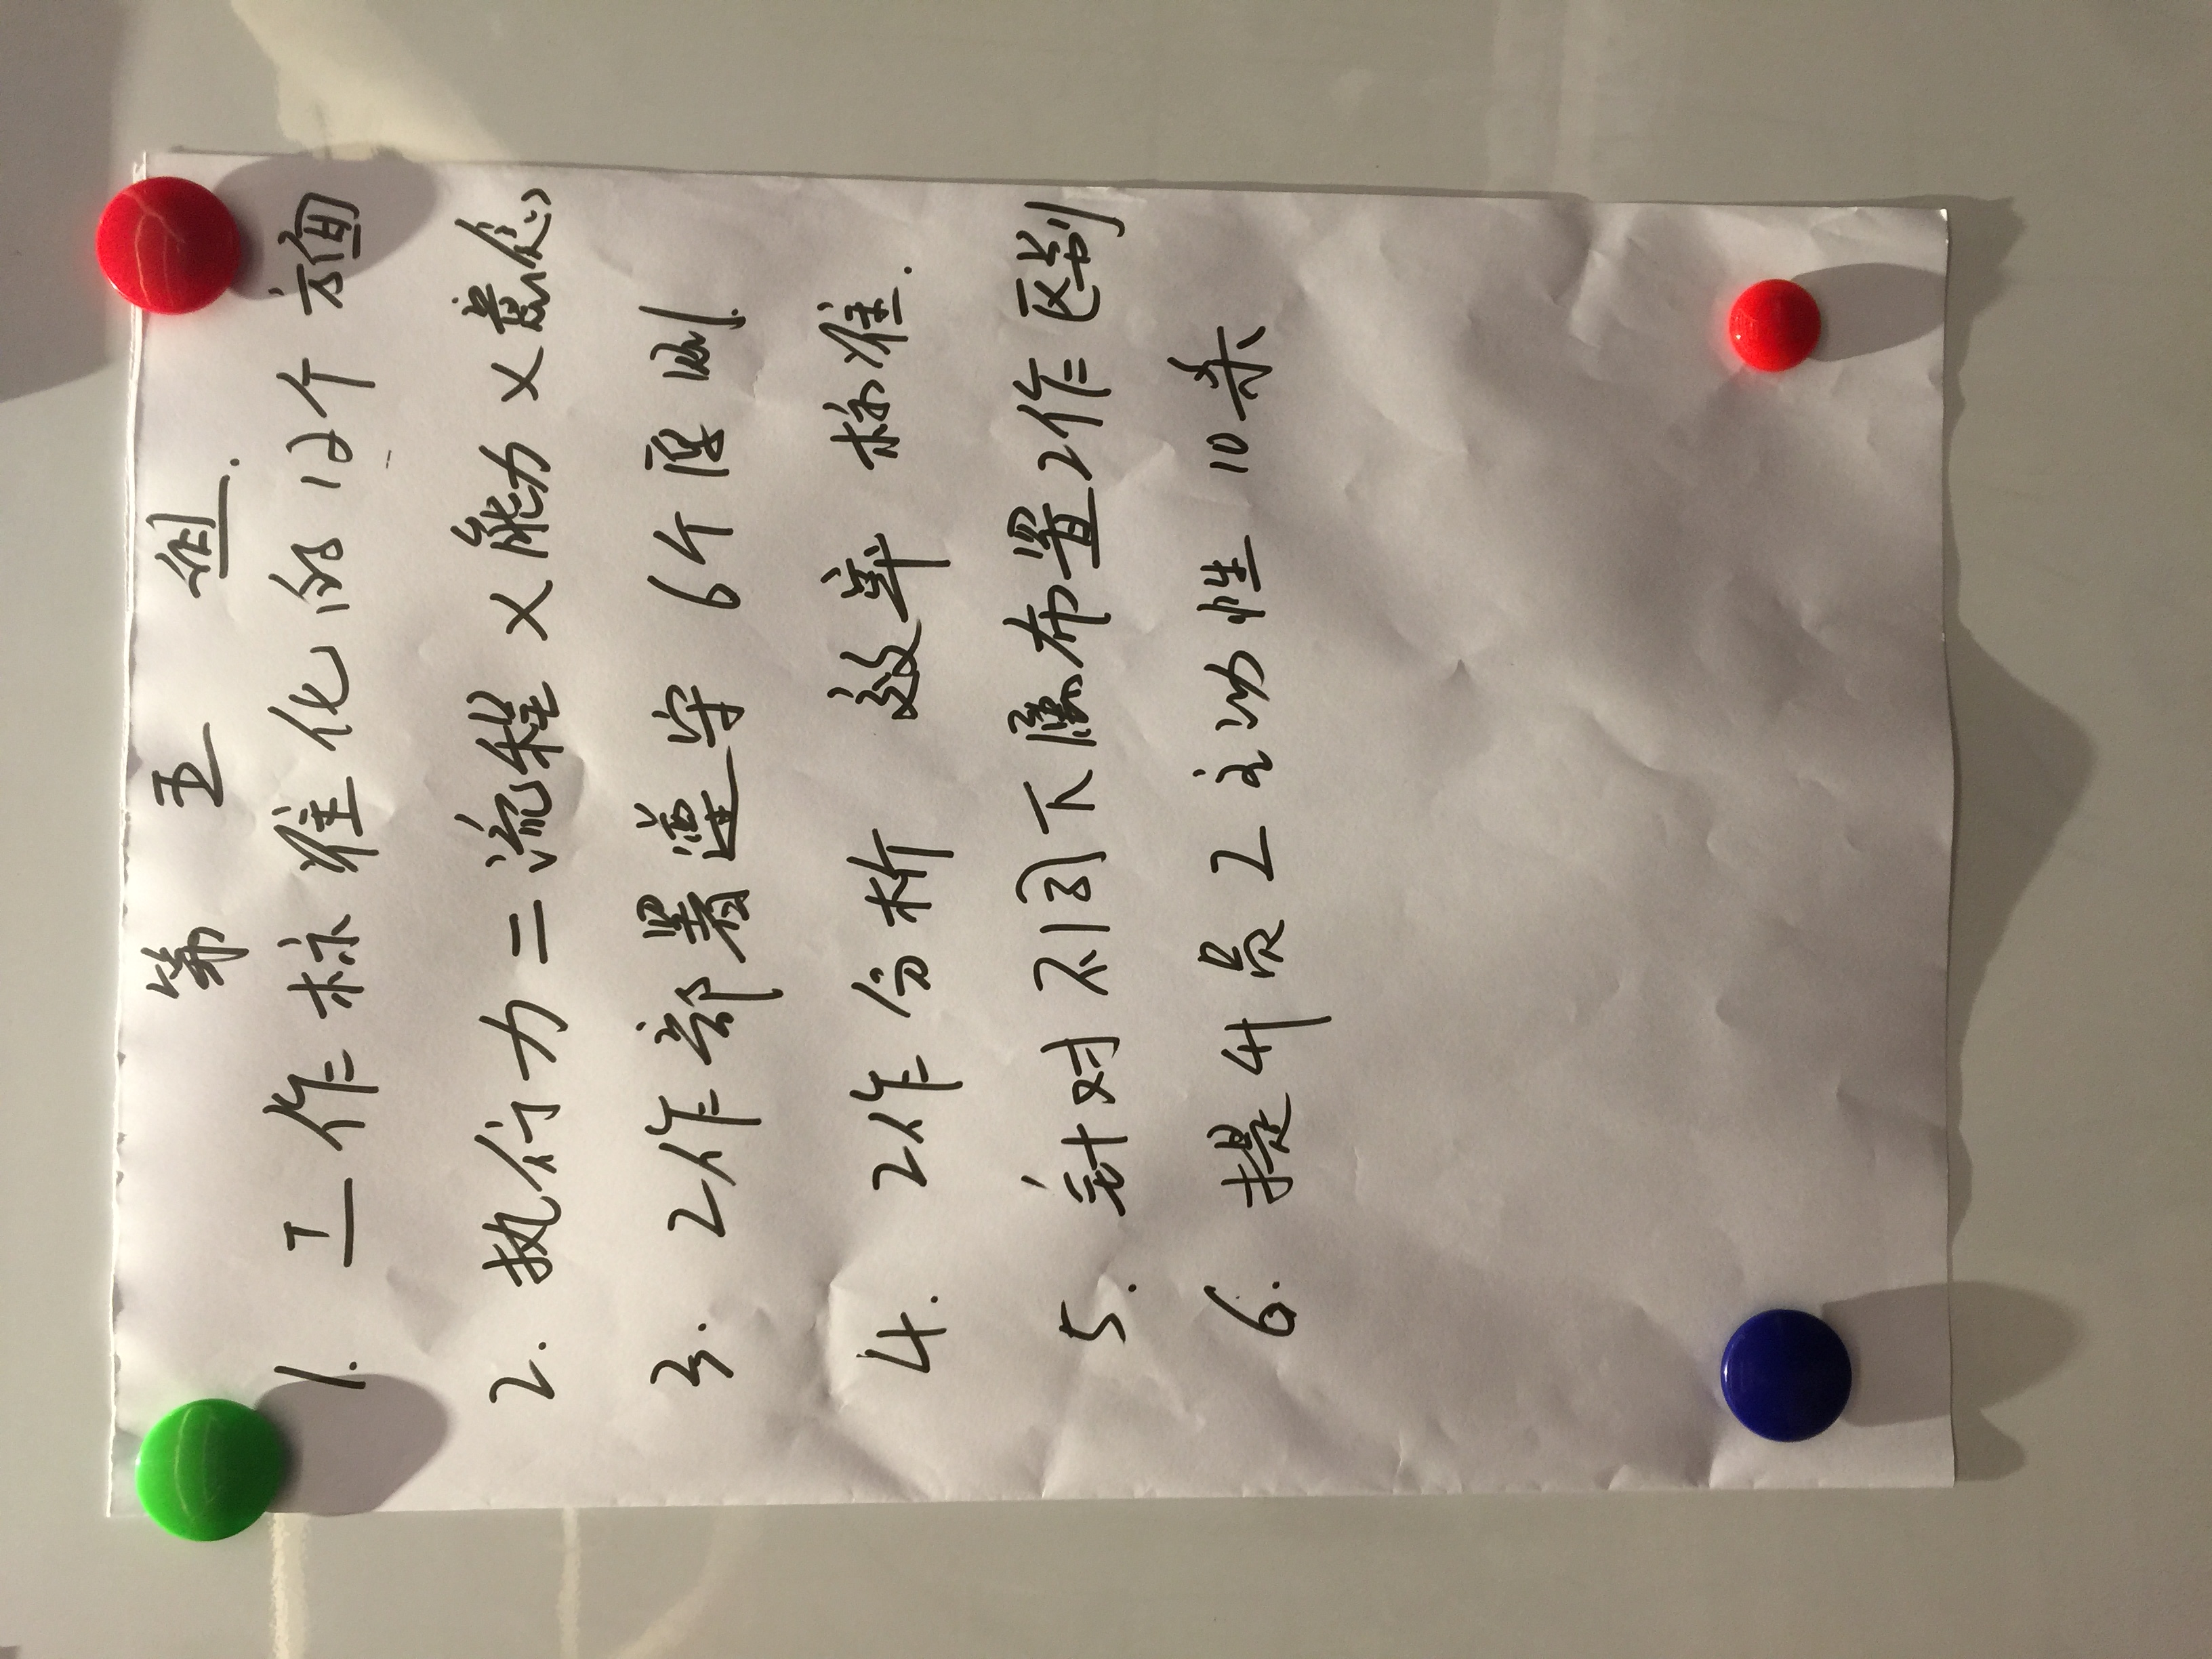 第五组.
1. 工作标准化的12个方面
2. 执行力=流程×能力×意愿
3. 工作部署遵守6个原则.
4. 工作分析 效率 标准.
5. 针对不同下属布置工作区别
6. 提升员工主动性10条